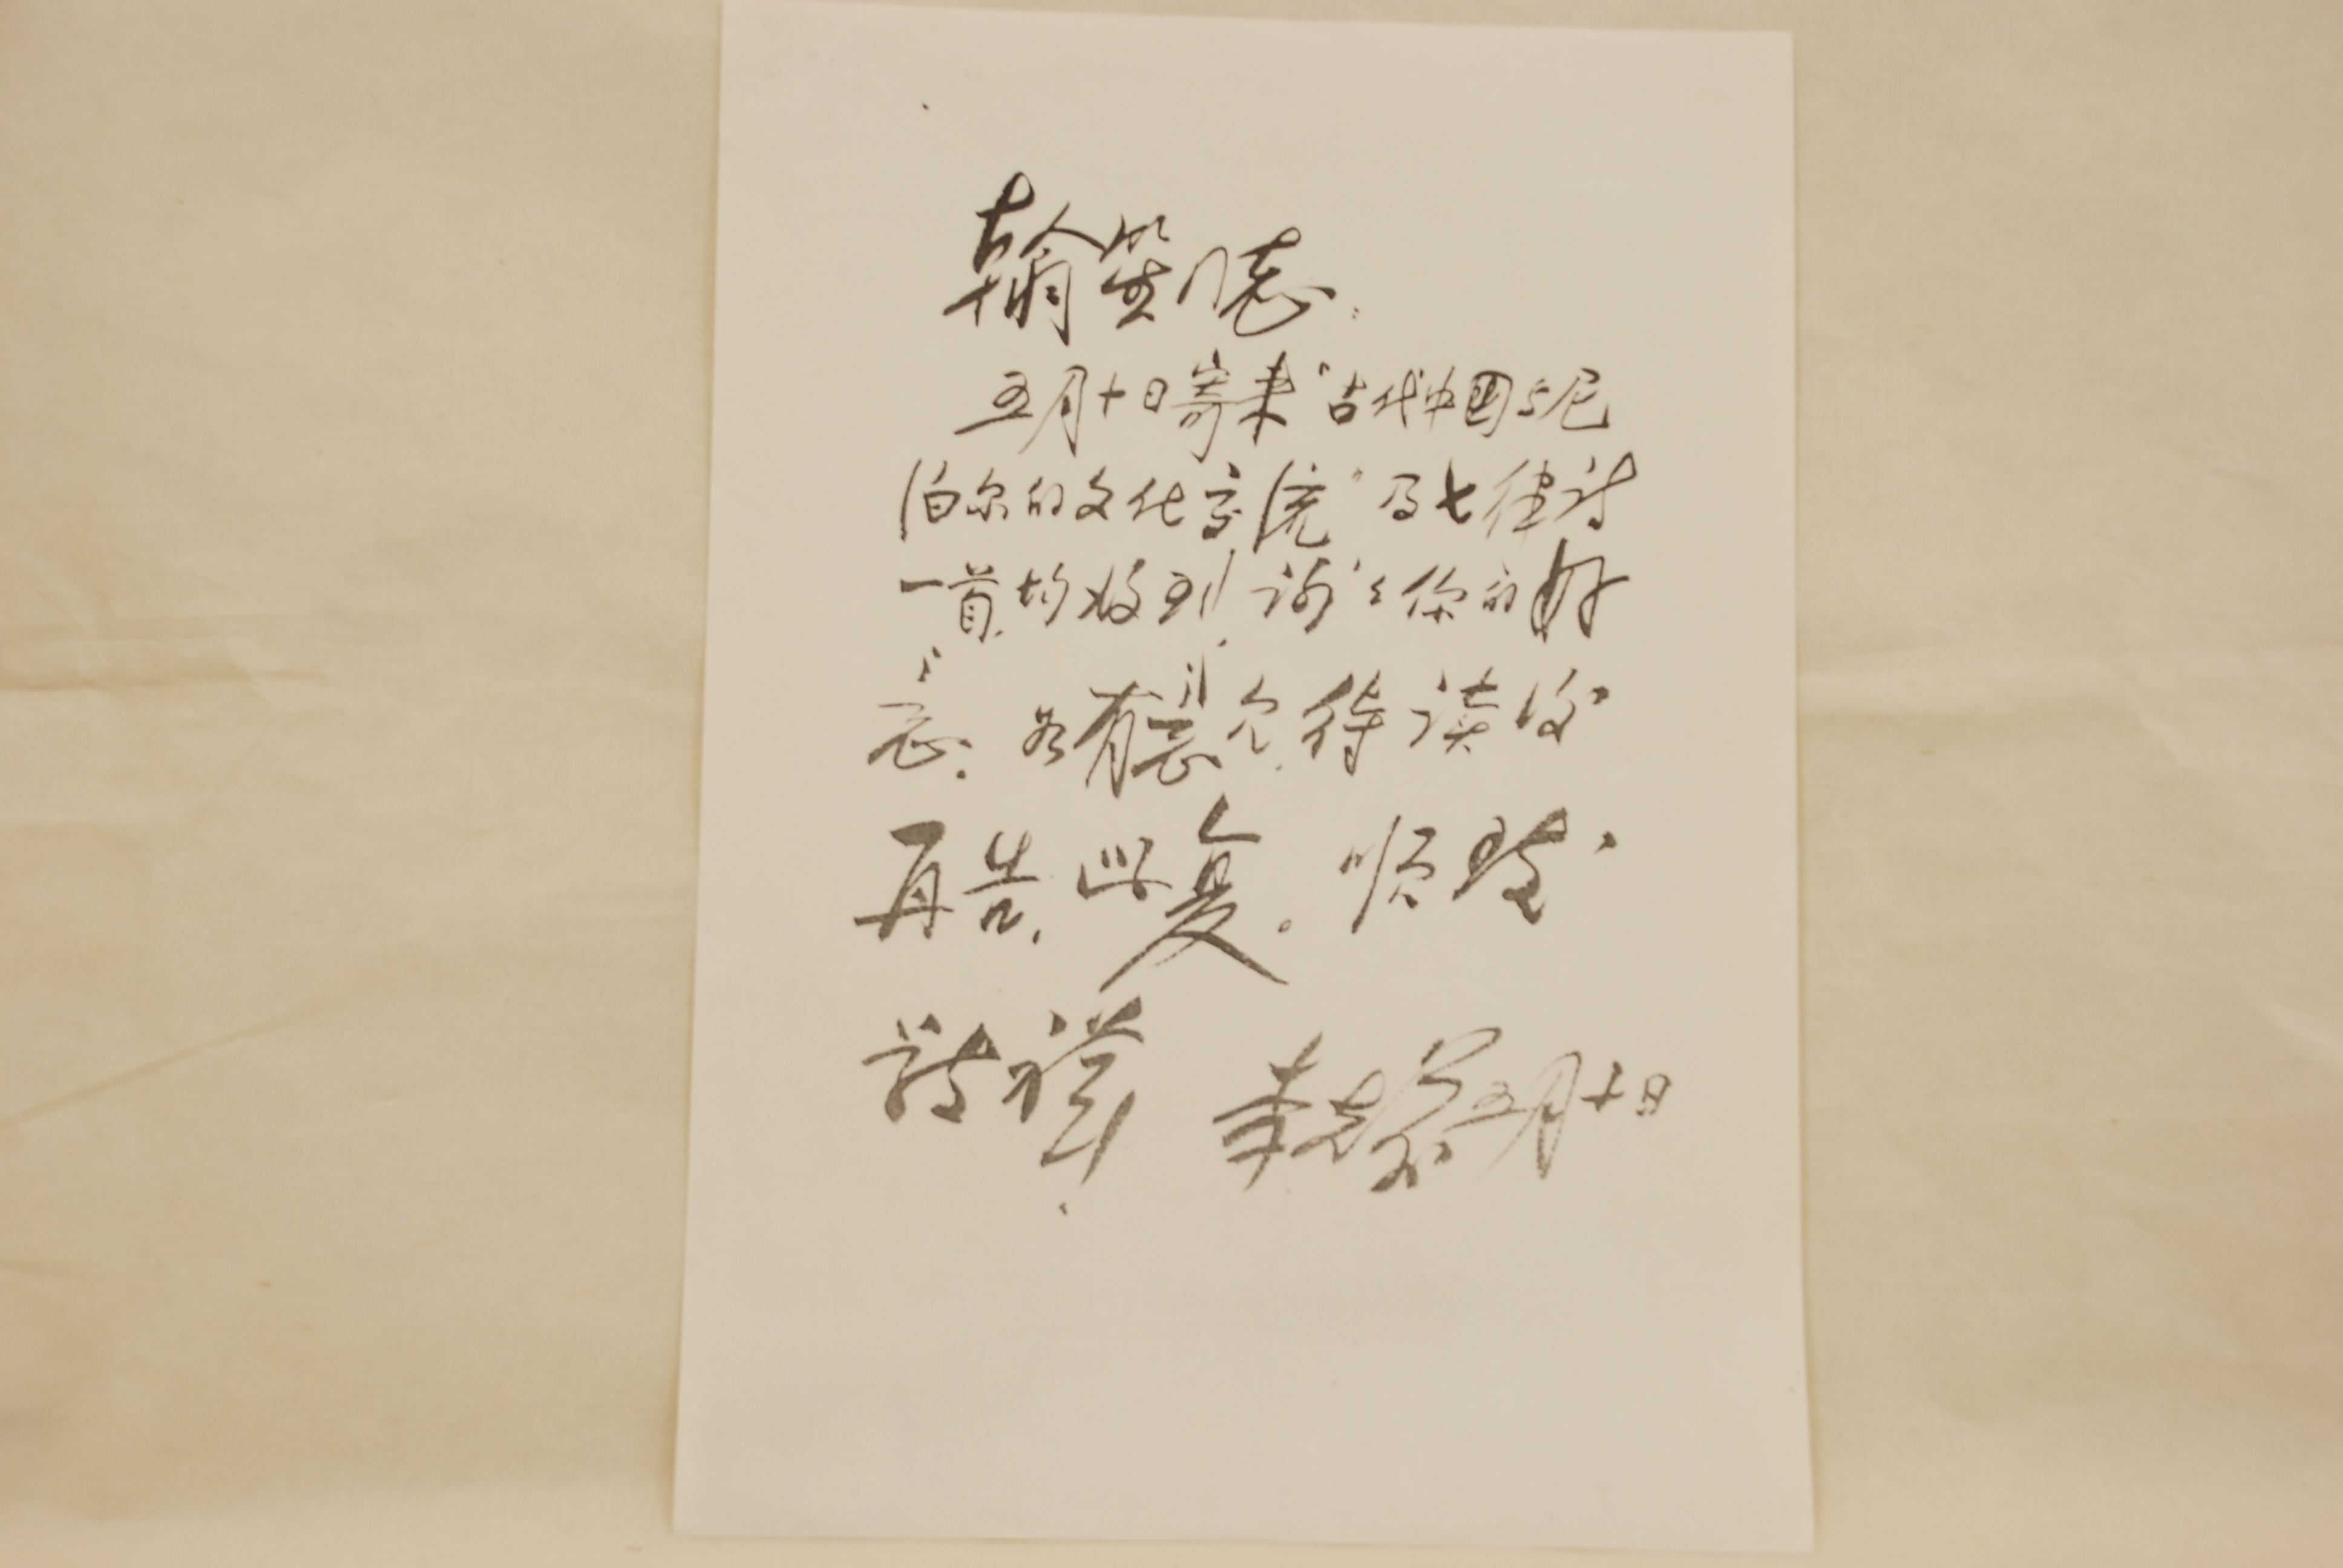 翰笙同志:
五月十日寄来“古代中国与尼
泊尔的文化交流”及七律诗
一首,均收到,谢谢你的好
意。如有意见,待读后
再告,此复。顺致
敬礼
李 五月十日